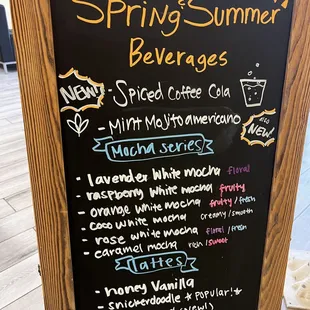 Spring & Summer
Beverages
NEW! - Spiced Coffee Cola
- Mint Mojito americano also NEW!
Mocha series
- lavender white mocha floral
- raspberry white mocha fruity
- orange white mocha fruity/fresh
- coco white mocha creamy/smooth
- rose white mocha floral/fresh
- caramel mocha rich/sweet
lattes
- honey Vanilla
- snickerdoodle *popular!*